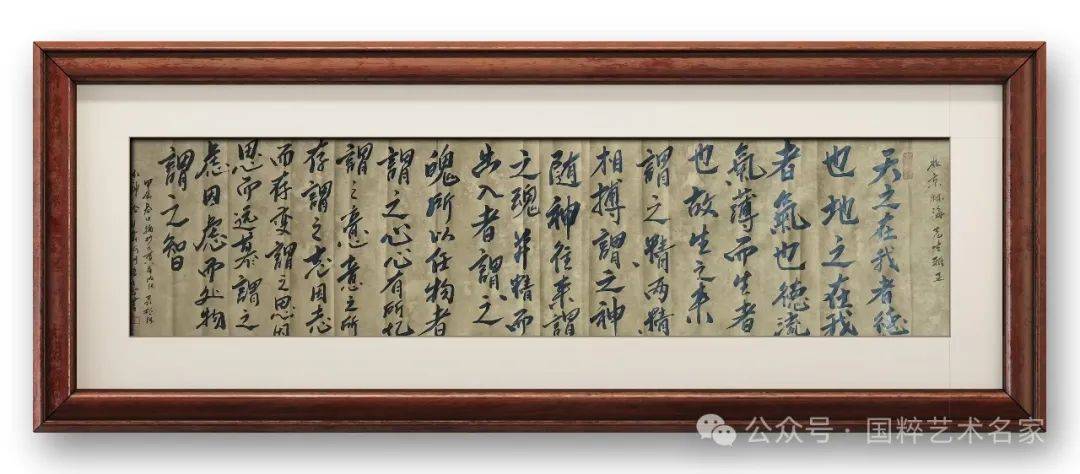 林海先生雅正
天之在我者德
也地之在我
者氣也德流
氣薄而生者
也故生之来
謂之精两精
相搏謂之神
随神往来謂
之魂并精而
出入者謂之
魄所以任物者
謂之心心有所忆
謂之意意之所
存謂之志因志
而存变謂之思因
思而远慕謂之
虑因虑而处物
謂之智
甲辰春日
公众号 · 国粹艺术名家